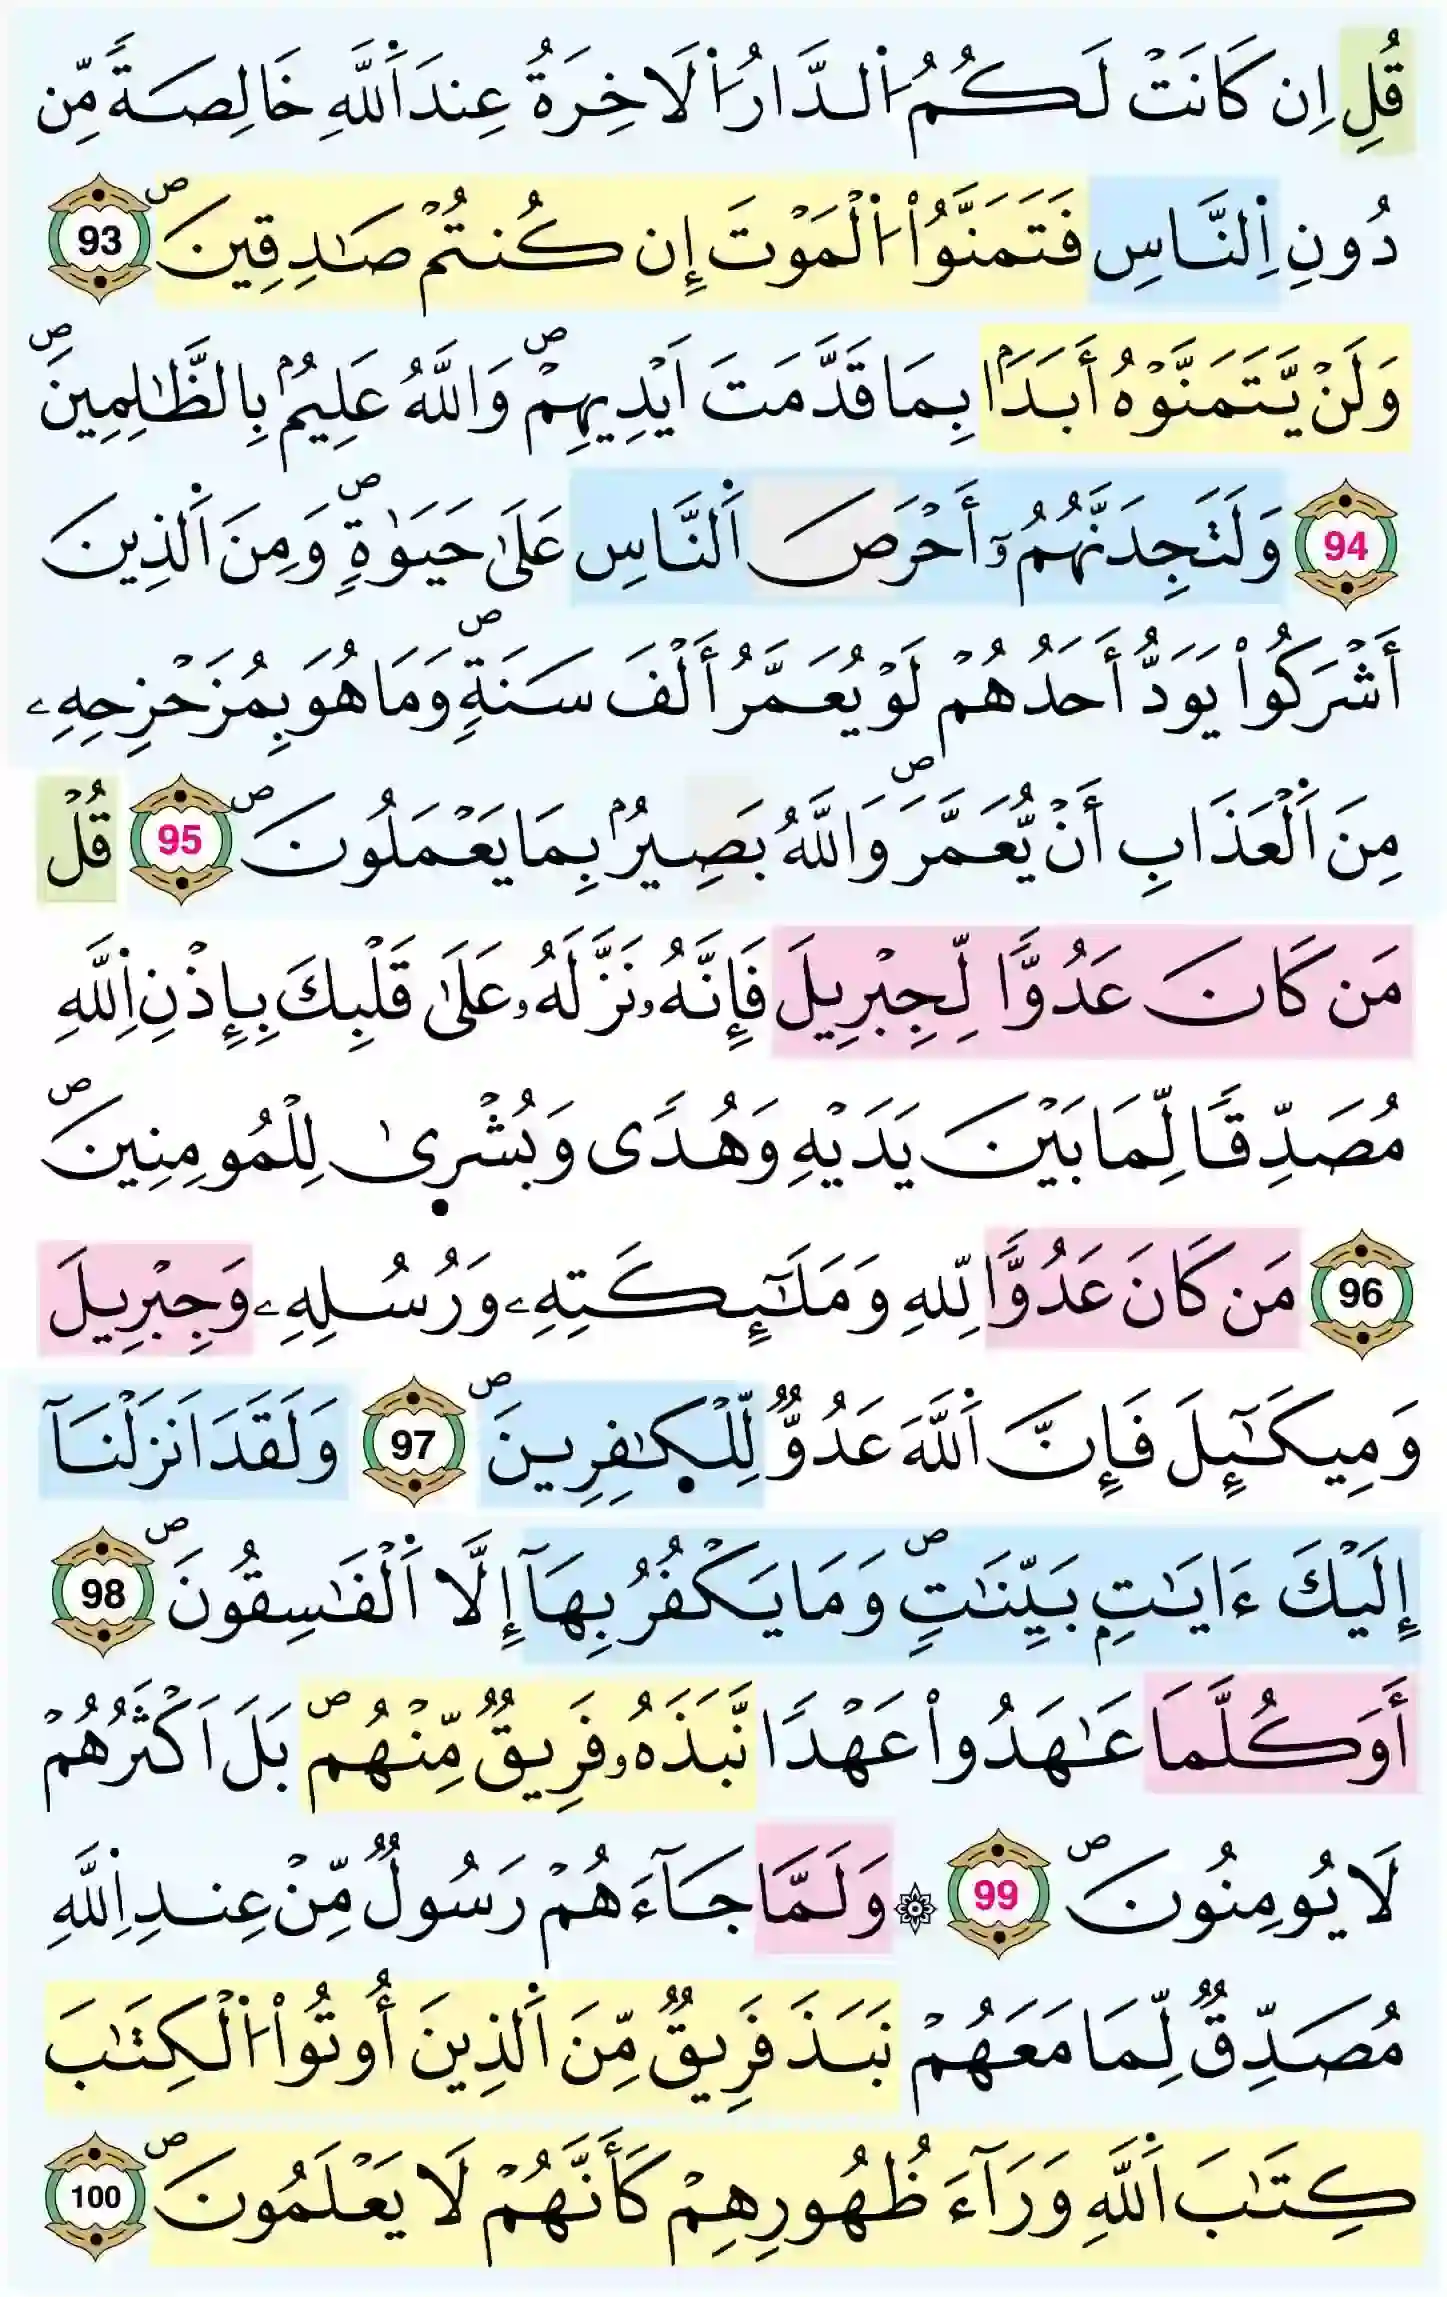 قُلِ اِن كَانَتْ لَكُمُ اُ۬لدَّارُ اُ۬لَاخِرَةُ عِندَ اَ۬للَّهِ خَالِصَةً مِّن
دُونِ اِ۬لنَّاسِ فَتَمَنَّوُاْ اُ۬لْمَوْتَ إِن كُنتُمْ صَٰدِقِينَۖ 93
وَلَنْ يَّتَمَنَّوْهُ أَبَدَاۢ بِمَا قَدَّمَتَ اَيْدِيهِمْۖ وَاللَّهُ عَلِيمُۢ بِالظَّٰلِمِينَۖ
94 وَلَتَجِدَنَّهُمُۥٓ أَحْرَصَ اَ۬لنَّاسِ عَلَىٰ حَيَوٰةٍۖ وَمِنَ اَ۬لذِينَ
أَشْرَكُواْ يَوَدُّ أَحَدُهُمْ لَوْ يُعَمَّرُ أَلْفَ سَنَةٍۖ وَمَا هُوَ بِمُزَحْزِحِهِۦ
مِنَ اَ۬لْعَذَابِ أَنْ يُّعَمَّرَۖ وَاللَّهُ بَصِيرُۢ بِمَا يَعْمَلُونَۖ 95 قُلْ
مَن كَانَ عَدُوّاً لِّجِبْرِيلَ فَإِنَّهُۥ نَزَّلَهُۥ عَلَىٰ قَلْبِكَ بِإِذْنِ اِ۬للَّهِ
مُصَدِّقاً لِّمَا بَيْنَ يَدَيْهِ وَهُدًى وَبُشْرٜىٰ لِلْمُومِنِينَۖ
96 مَن كَانَ عَدُوّاً لِّلهِ وَمَلَٰٓئِكَتِهِۦ وَرُسُلِهِۦ وَجِبْرِيلَ
وَمِيكَٰٓئِلَ فَإِنَّ اَ۬للَّهَ عَدُوٌّ لِّلْكٰٜفِرِينَۖ 97 وَلَقَدَ اَنزَلْنَآ
إِلَيْكَ ءَايَٰتِۢ بَيِّنَٰتٍۖ وَمَا يَكْفُرُ بِهَآ إِلَّا اَ۬لْفَٰسِقُونَۖ 98
أَوَكُلَّمَا عَٰهَدُواْ عَهْداً نَّبَذَهُۥ فَرِيقٌ مِّنْهُمۖ بَلَ اَكْثَرُهُمْ
لَا يُومِنُونَۖ 99 ۞ وَلَمَّا جَآءَهُمْ رَسُولٌ مِّنْ عِندِ اِ۬للَّهِ
مُصَدِّقٌ لِّمَا مَعَهُمْ نَبَذَ فَرِيقٌ مِّنَ اَ۬لذِينَ أُوتُواْ اُ۬لْكِتَٰبَ
كِتَٰبَ اَ۬للَّهِ وَرَآءَ ظُهُورِهِمْ كَأَنَّهُمْ لَا يَعْلَمُونَۖ 100